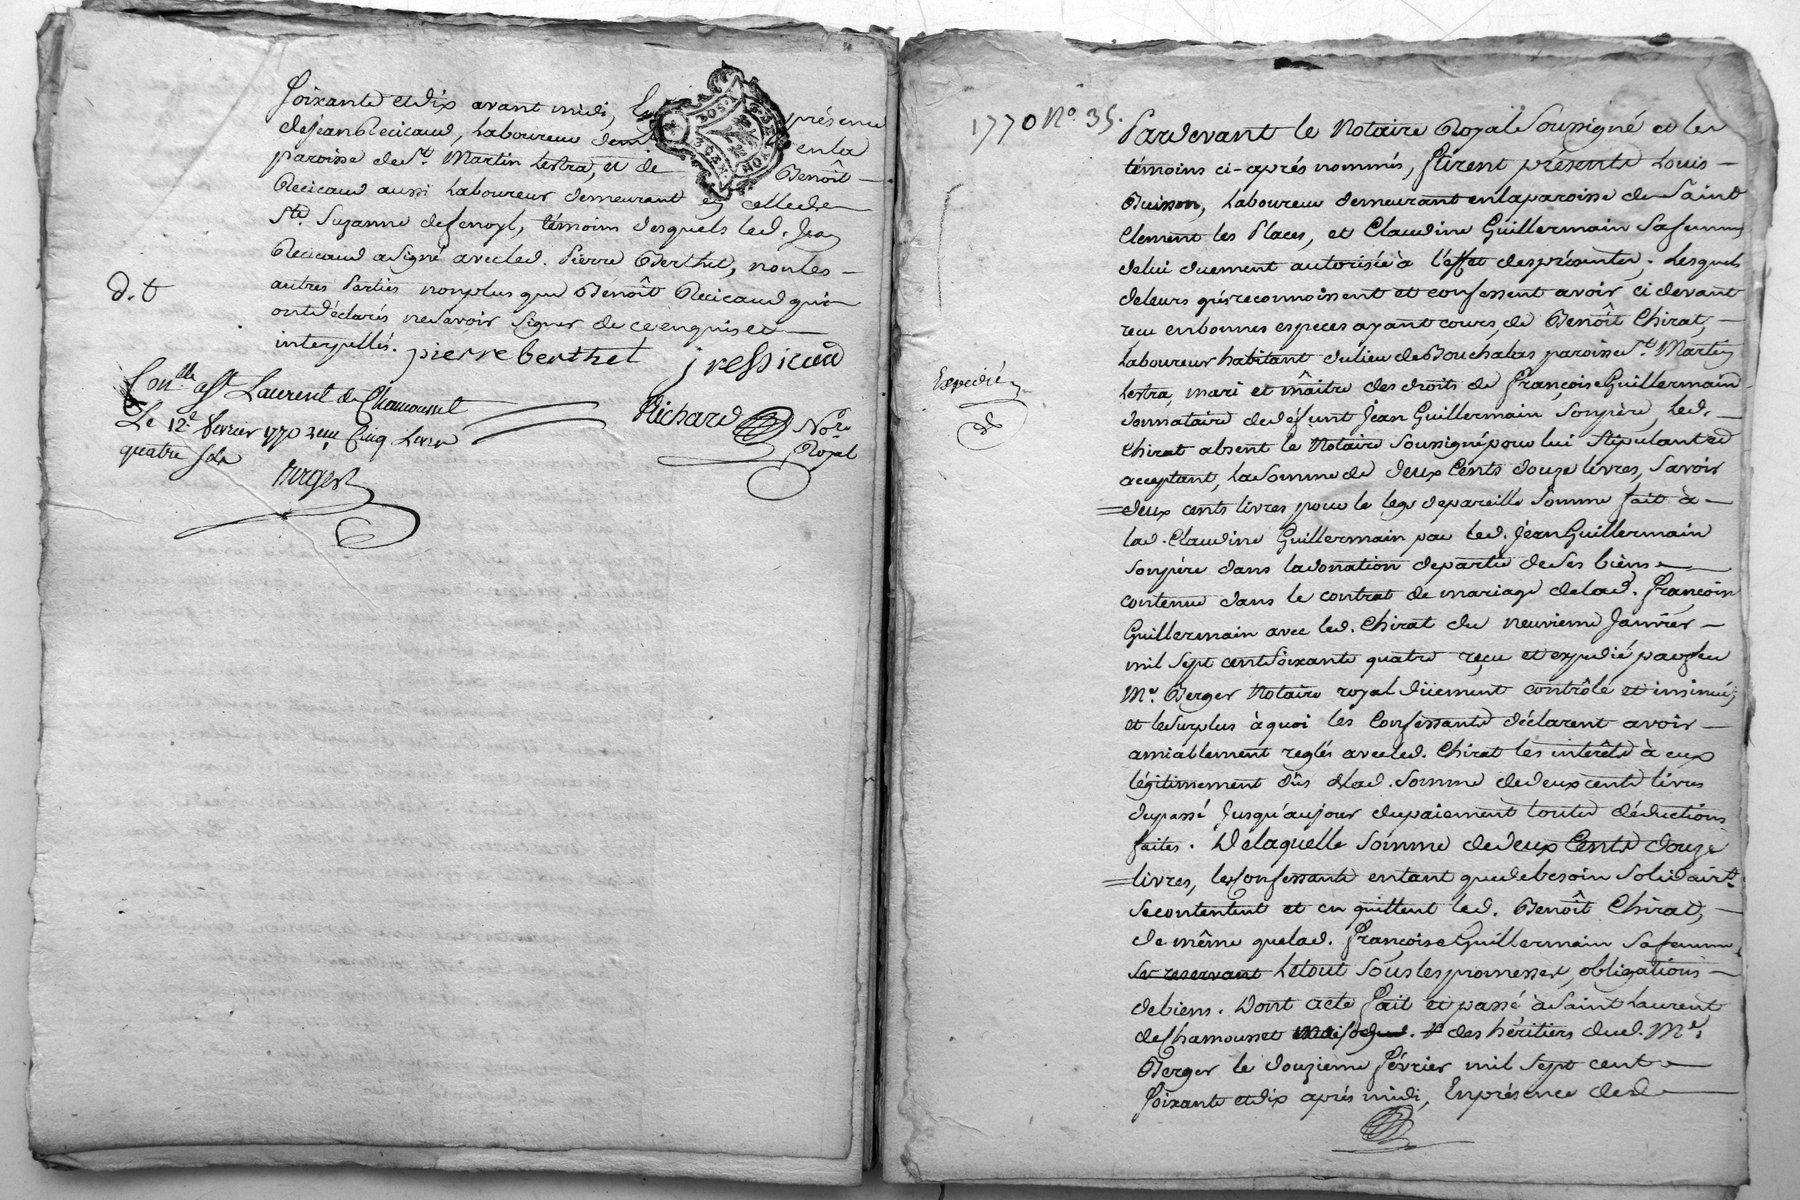 Soixante et dix avant midi, En présence
de Jean Recicaud, Laboureur dem en la
paroisse de St. Martin Lestra, et de Benoît
Recicaud aussi Laboureur demeurant en celle de
Ste. Suzanne de fenoyl, témoins desquels led. Jean
Recicaud a signé avec led. Pierre Berthet, non les
autres Parties non plus que Benoît Recicaud qui
ont déclarés ne Savoir Signer de ce enquis et
interpellés. pierre berthet j ressicaud
d. t
Con.lle a St. Laurent de Chamousset
Le 12e. fevrier 1770 reçu Cinq Livres
quatre sols
Richard No.re
Royal
1770 No. 35.
Pardevant le Notaire Royal Soussigné et les
témoins ci-aprés nommés, fûrent présents Louis
Buisson, Laboureur demeurant en la paroisse de Saint
Clement les Places, et Claudine Guillermain Sa femme
de lui duement autorisée à l'effet des présentes. Lesquels
de leurs grés reconnoissent et confessent avoir ci devant
reçu en bonnes especes ayant cours, de Benoît Chirat,
Laboureur habitant du lieu de Bouchalas paroisse St. Martin
Lestra, mari et maître des droits de françoise Guillermain
donnataire de défunt Jean Guillermain Son père, led.
Chirat absent le Notaire Soussigné pour lui Stipulant et
acceptant, La Somme de deux Cents douze livres, Savoir
deux cents livres pour le legs de pareille Somme fait à
lad. Claudine Guillermain par led. Jean Guillermain
Son père dans la donation de partie de Ses biens
contenue dans le contrat de mariage de lad. françoise
Guillermain avec led. Chirat du neuvieme Janvier
mil Sept cent Soixante quatre reçu et expedié par feu
Me. Berger Notaire royal düement contrôlé et insinué;
et le Surplus à quoi les Confessants déclarent avoir
amiablement reglés avec led. Chirat les intérêts à eux
légitimement dûs de lad. Somme de deux cents livres
du passé Jusqu'aujour du paiement toutes déductions
faites. De laquelle Somme de deux Cents douze
livres, les Confessants en tant que de besoin Solidairt.
Se contentent et en quittent led. Benoît Chirat,
de même que lad. françoise Guillermain Sa femme
se reservant Le tout Sous les promesses, obligations
de biens. Dont acte fait et passé à Saint Laurent
de Chamousset des héritiers dud. Me.
Berger le douzieme février mil Sept cent
Soixante et dix aprés midi, En présence de
Expedié